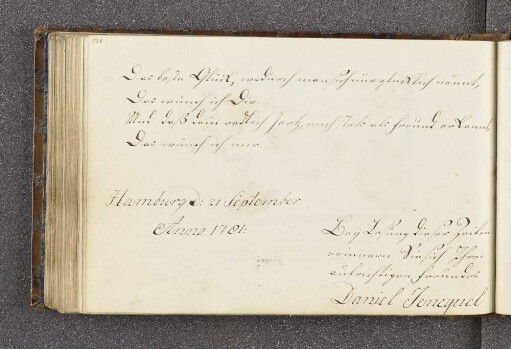 Das beste Glück, wodurch man sich nur glücklich nennt,
Das wünsch ich Dir.
Und daß dein redlich Herz, mich stets als Freund erkennt,
Das wünsch ich mir.
Hamburg d: 21 September
Anno 1781.
Bey Lesung dieser Zeilen
erinnern Sie sich Ihres
aufrichtigen Freundes
Daniel Jencquel